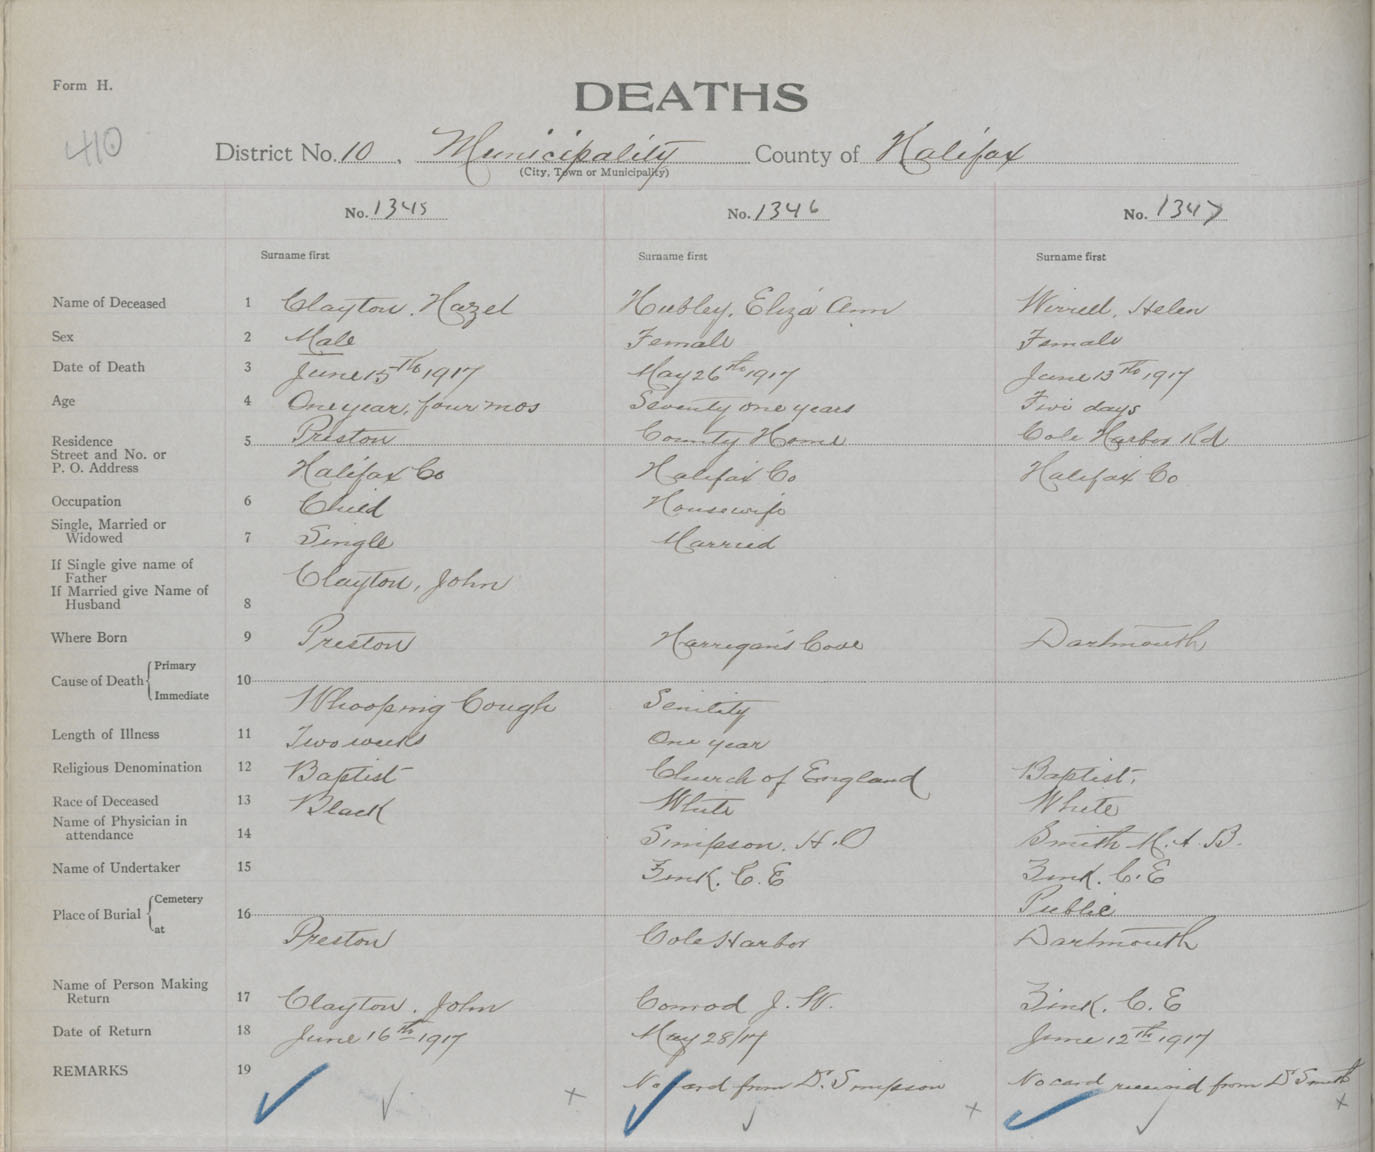 Form H.
DEATHS
410
District No. 10, Municipality County of Halifax
(City, Town or Municipality)
No. 1345 No. 1346 No. 1347
Surname first Surname first Surname first
Name of Deceased 1 Clayton, Hazel Hubley, Eliza Ann Wirrell, Helen
Sex 2 Male Female Female
Date of Death 3 June 15th 1917 May 26th 1917 June 13th 1917
Age 4 One year, four mos Seventy one years Five days
Residence 5 Preston County Home Cole Harbor Rd
Street and No. or
P. O. Address Halifax Co Halifax Co Halifax Co
Occupation 6 Child Housewife
Single, Married or
Widowed 7 Single Married
If Single give name of
Father Clayton, John
If Married give Name of
Husband 8
Where Born 9 Preston Harrigan's Cove Dartmouth
Cause of Death Primary 10
Immediate Whooping Cough Senility
Length of Illness 11 Two weeks One year
Religious Denomination 12 Baptist Church of England Baptist.
Race of Deceased 13 Black White White
Name of Physician in
attendance 14 Simpson, H.O Smith M. A. B.
Name of Undertaker 15 Zink. C. E Zink. C. E
Place of Burial Cemetery 16 Public
at Preston Cole Harbor Dartmouth
Name of Person Making
Return 17 Clayton, John Conrod J. W. Zink, C. E
Date of Return 18 June 16th 1917 May 28/17 June 12th 1917
REMARKS 19 No card from Dr. Simpson No card received from Dr Smith